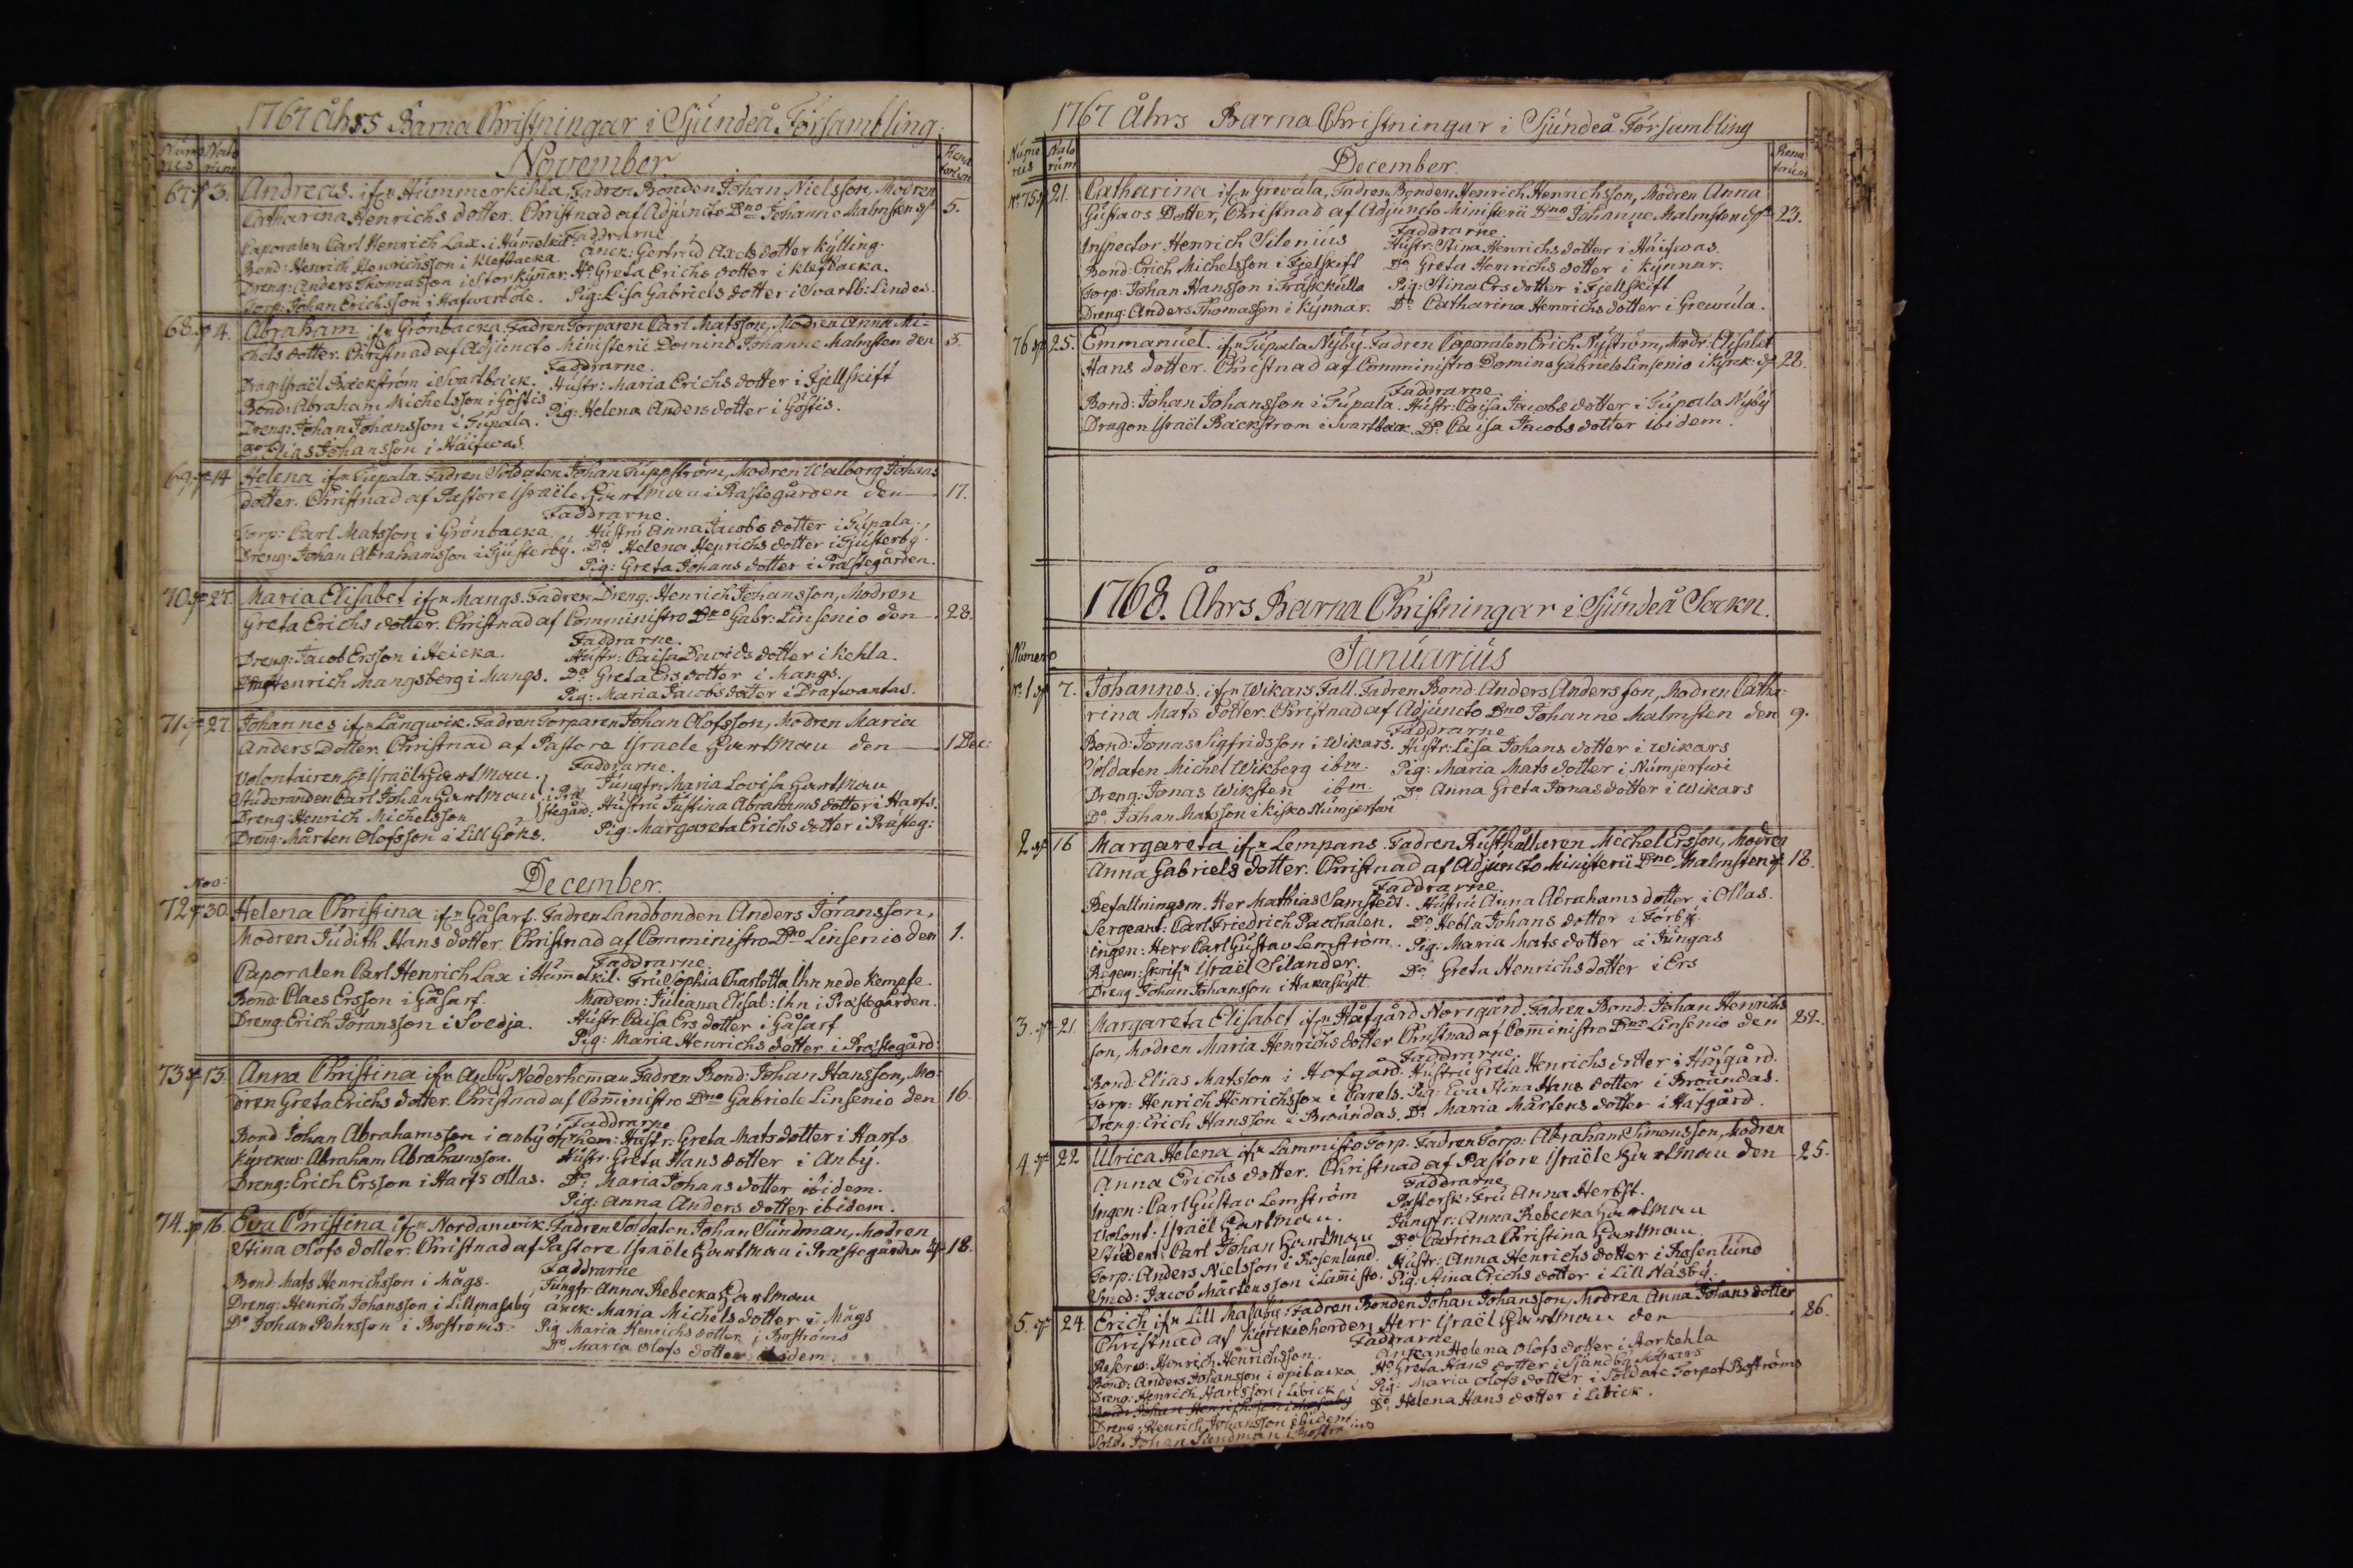 1767 åhrs Barna Christningar i Sjundeå Försambling.
Numerus Natorum November Renatorum
67 d. 3. Andreas ifrn Hummerkihla. Fadren Bonden Johan Nielsson, Modren
Catharina Henrichs dotter. Christnad af Adjuncto Dno Johanne Malmsten d. 5.
Faddrarne
Caporalen Carl Henrich Lax i Hummelkil. Änck: Gertrud Axels dotter Kylling.
Bond: Henrich Henrichsson i Klefbacka. Ho Greta Erichs dotter i Klefbacka.
Dreng: Anders Thomasson i Storkynnar. Pig: Lisa Gabriels dotter i Svartb: Lindes.
Torp: Johan Erichsson i Hafwerbole.
68. d. 4. Abraham ifrn Grönbacka. Fadren Torparen Carl Matsson, Modren Anna Mi-
chels dotter. Christnad af Adjuncto Ministerii Domino Johanne Malmsten den 5.
Faddrarne.
Drag: Israël Backström i Svartbäck. Hustr: Maria Erichs dotter i Fjellskift
Bond: Abraham Michelsson i Göstis Pig: Helena Anders dotter i Göstis.
Dreng: Johan Johansson i Tupala.
Do Elias Johansson i Häifwas.
69. d. 14 Helena ifrn Tupala. Fadren Soldaten Johan Tuppström, Modren Walborg Johans
dotter. Christnad af Pastore Israële Hartman i Prästegården den 17.
Faddrarne.
Torp: Carl Matsson i Grönbacka. Hustru Anna Jacobs dotter i Tupala.
Dreng: Johan Abrahamsson i Gjusterby. Do Helena Henrichs dotter i Gjusterby.
Pig: Greta Johans dotter i Prästegården.
70. d. 27. Maria Elisabet ifrn Mangs. Fadren Dreng: Henrich Johansson, Modren
Greta Erichs dotter. Christnad af Comministro Dno Gabr: Linsenio den 28.
Faddrarne.
Dreng: Jacob Ersson i Heicka. Hustr: Caisa Davids dotter i Kehla.
Dreng Henrich Mangsberg i Mangs. Do Greta Ers dotter i Mangs.
Pig: Maria Jacobs dotter i Drafwantas.
71. d. 27. Johannes ifrn Långwik. Fadren Torparen Johan Olofsson, Modren Maria
Anders dotter. Christnad af Pastore Israele Hartman den 1 Dec:
Faddrarne.
Volontairen Hr Israël Hartman. Jungfr: Maria Lovisa Hartman
Studeranden Carl Johan Hartman i Prästegård: Hustru Justina Abrahams dotter i Harfs.
Dreng: Henrich Michelsson Pig: Margareta Erichs dotter i Prästeg:
Dreng: Mårten Olofsson i Lill Göks.
December.
Nov:
72 d. 30. Helena Christina ifrn Gåsarf. Fadren Landbonden Anders Jöransson,
Modren Judith Hans dotter. Christnad af Comministro Dno Linsenio den 1.
Faddrarne
Caporalen Carl Henrich Lax i Hummelkil. Fru Sophia Charlotta Ihn nede Kempfe.
Bond: Claes Ersson i Gåsarf. Madem: Juliana Elisab: Ihn i Prästegården.
Dreng: Erich Jöransson i Svedja. Hustr. Caisa Ers dotter i Gåsarf
Pig: Maria Henrichs dotter i Prästegård:
73 d. 13. Anna Christina ifrn Anby Nederhemman. Fadren Bond: Johan Hansson, Mo-
dren Greta Erichs dotter. Christnad af Comministro Dno Gabriele Linsenio den 16.
Faddrarne
Bond Johan Abrahamsson i Anby öfrhem: Hustr. Greta Mats dotter i Harfs
Kyrckw: Abraham Abrahamsson. Hustr: Greta Hans dotter i Anby.
Dreng: Erich Ersson i Harfs Ollas. Do Maria Johans dotter ibidem.
Pig: Anna Anders dotter ibidem.
74. d. 16. Eva Christina ifrn Nordanwik. Fadren Soldaten Johan Sundman, Modren
Stina Olofs dotter. Christnad af Pastore Israele Hartman i Prästegården d. 18.
Faddrarne
Bond Mats Henrichsson i Mågs. Jungfr Anna Rebecka Hartman
Dreng: Henrich Johansson i Lillmasaby Änck: Maria Michels dotter i Mågs
Do Johan Pehrsson i Boströms. Pig Maria Henrichs dotter i Boströms
Do Maria Olofs dotter ibidem.
1767 Åhrs Barna Christningar i Sjundeå Försambling
Numerus Natorum December. Renatorum
No 75 d. 21. Catharina ifrn Grevula, Fadren Bonden Henrich Henrichsson, Modren Anna
Gustavs Dotter, Christnad af Adjuncto Ministerii Dno Johanne Malmsten d. 23.
Faddrarne
Inspector Henrich Silenius Hustr: Stina Henrichs dotter i Häifwas.
Bond: Erich Michelsson i Fjelskift Do Greta Henrichs dotter i Kynnar.
Torp: Johan Hansson i Träskkulla Pig: Stina Ers dotter i Fjellskift
Dreng: Anders Thomasson i Kynnar. Do Catharina Henrichs dotter i Grewula.
76 d. 25. Emmanuel ifrn Tupala Nyby. Fadren Caporalen Erich Nyström, Modr: Elisabet
Hans dotter. Christnad af Comministro Domino Gabriele Linsenio i Kyrk: d. 28.
Faddrarne
Bond: Johan Johansson i Tupala. Hustr: Caisa Jacobs dotter i Tupala Nyby
Dragon Israël Backström i Svartback. Do Caisa Jacobs dotter ibidem.
1768. Åhrs Barna Christningar i Sjundeå Sockn.
Numero Januarius
No 1 d. 7. Johannes ifrn Wikars Fall. Fadren Bond Anders Andersson, Modren Catha-
rina Mats dotter. Christnad af Adjuncto Dno Johanne Malmsten den 9.
Faddrarne
Bond: Jonas Sigfridsson i Wikars. Hustr: Lisa Johans dotter i Wikars
Soldaten Michel Wikberg ibm. Pig: Maria Mats dotter i Numjerfwi
Dreng: Jonas Wiksten ibm. Do Anna Greta Jonas dotter i Wikars
Do Johan Matsson i Kisko Numjerfwi
2 d. 16 Margareta ifrn Lempans. Fadren Rusthållaren Michel Ersson, Modren
Anna Gabriels dotter. Christnad af Adjuncto Ministerii Dno Malmsten d. 18.
Faddrarne.
Befallningsm. Her Mathias Samstedt. Hustru Anna Abrahams dotter i Ollas.
Sergeant: Carl Friedrich Pachalen. Do Hebla Johans dotter i Förby.
Ingen: Herr Carl Gustav Lemström. Pig: Maria Mats dotter i Jungas
Regem: skrifr Israël Silander. Do Greta Henrichs dotter i Ers
Dreng Johan Johansson i Haraskytt.
3. d. 21. Margareta Elisabet ifrn Håfgård Norrgård. Fadren Bond: Johan Henrichs
son, Modren Maria Henrichs dotter Christnad af Comministro Dno Linsenio den 22.
Faddrarne.
Bond: Elias Matsson i Hofgård. Hustru Greta Henrichs dotter i Håfgård.
Torp: Henrich Henrichsson i Carels. Pig: Eva Stina Hans dotter i Broundas.
Dreng: Erich Hansson i Broundas. Do Maria Mårtens dotter i Håfgård.
4. d. 22 Ulrica Helena ifrn Lammisto Torp. Fadren Torp: Abraham Simonsson, Modren
Anna Erichs dotter. Christnad af Pastore Israële Hartman den 25.
Faddrarne
Ingen: Carl Gustav Lemström Pastorsk: Fru Anna Herbst.
Volont: Israël Hartman. Jungfr: Anna Rebecka Hartman
Student: Carl Johan Hartman Do Catrina Christina Hartman
Torp: Anders Nielsson i Rosenlund. Hustr: Anna Henrichs dotter i Rosenlund
Smed: Jacob Mårtensson i Lammisto. Pig: Stina Erichs dotter i Lill Näsby.
5. d. 24. Erich ifrn Lill Masaby: Fadren Bonden Johan Johansson, Modren Anna Johans dotter
Christnad af Kyrckioherden Herr Israël Hartman den 26.
Faddrarne
Reserv: Henrich Henrichsson. Änkan Helena Olofs dotter i Storkehla
Bond: Anders Johansson i Opibacka Ho Greta Hans dotter i Sjundby
Dreng: Henrich Hansson i Libick Pig: Maria Olofs dotter i Soldate Torpet Boströms
Dreng: Henrich Johansson ibidem Do: Helena Hans dotter i Libick.
Sold. Johan Sundman i Boströms